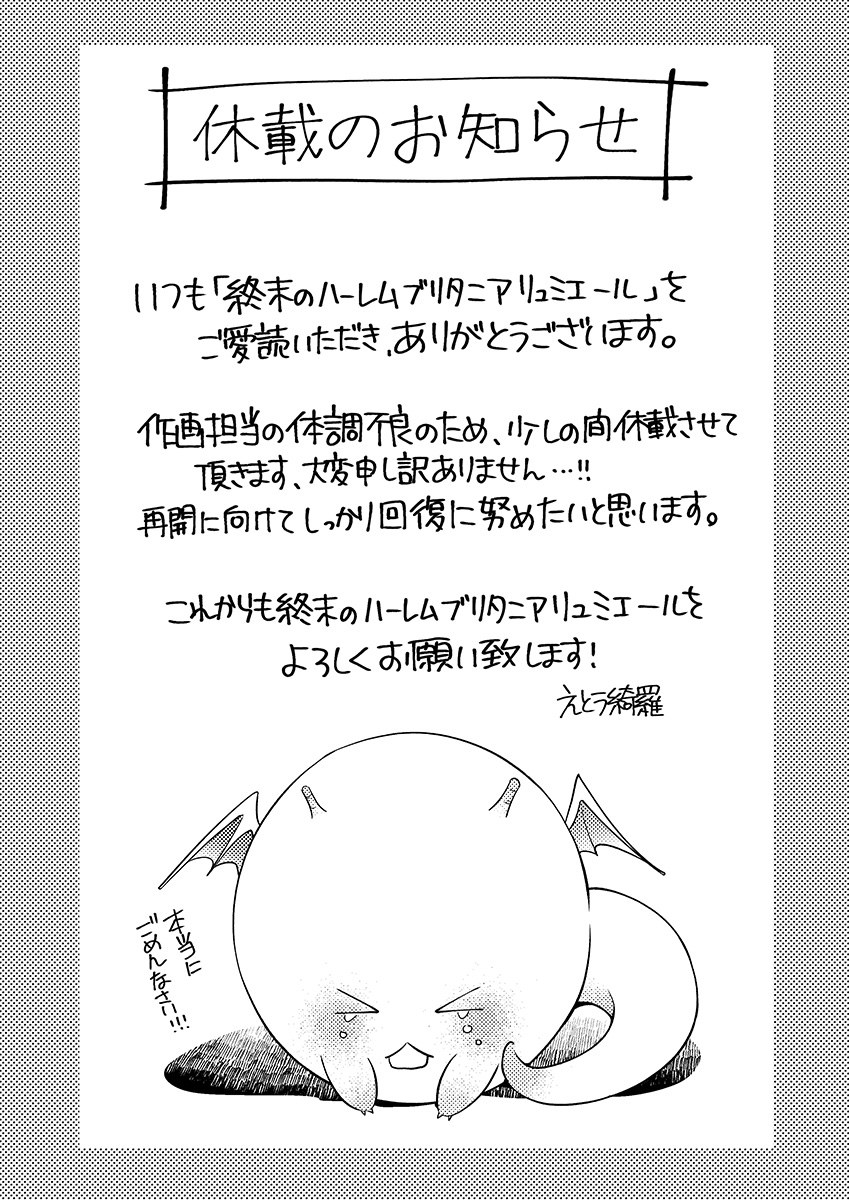 休載のお知らせ
いつも「終末のハーレムブリタニアリュミエール」を
ご愛読いただき、ありがとうございます。
作画担当の体調不良のため、少しの間休載させて
頂きます、大変申し訳ありません…!!
再開に向けてしっかり回復に努めたいと思います。
これからも終末のハーレムブリタニアリュミエールを
よろしくお願い致します!
えとう綺羅
本当に
ごめんなさい!!!